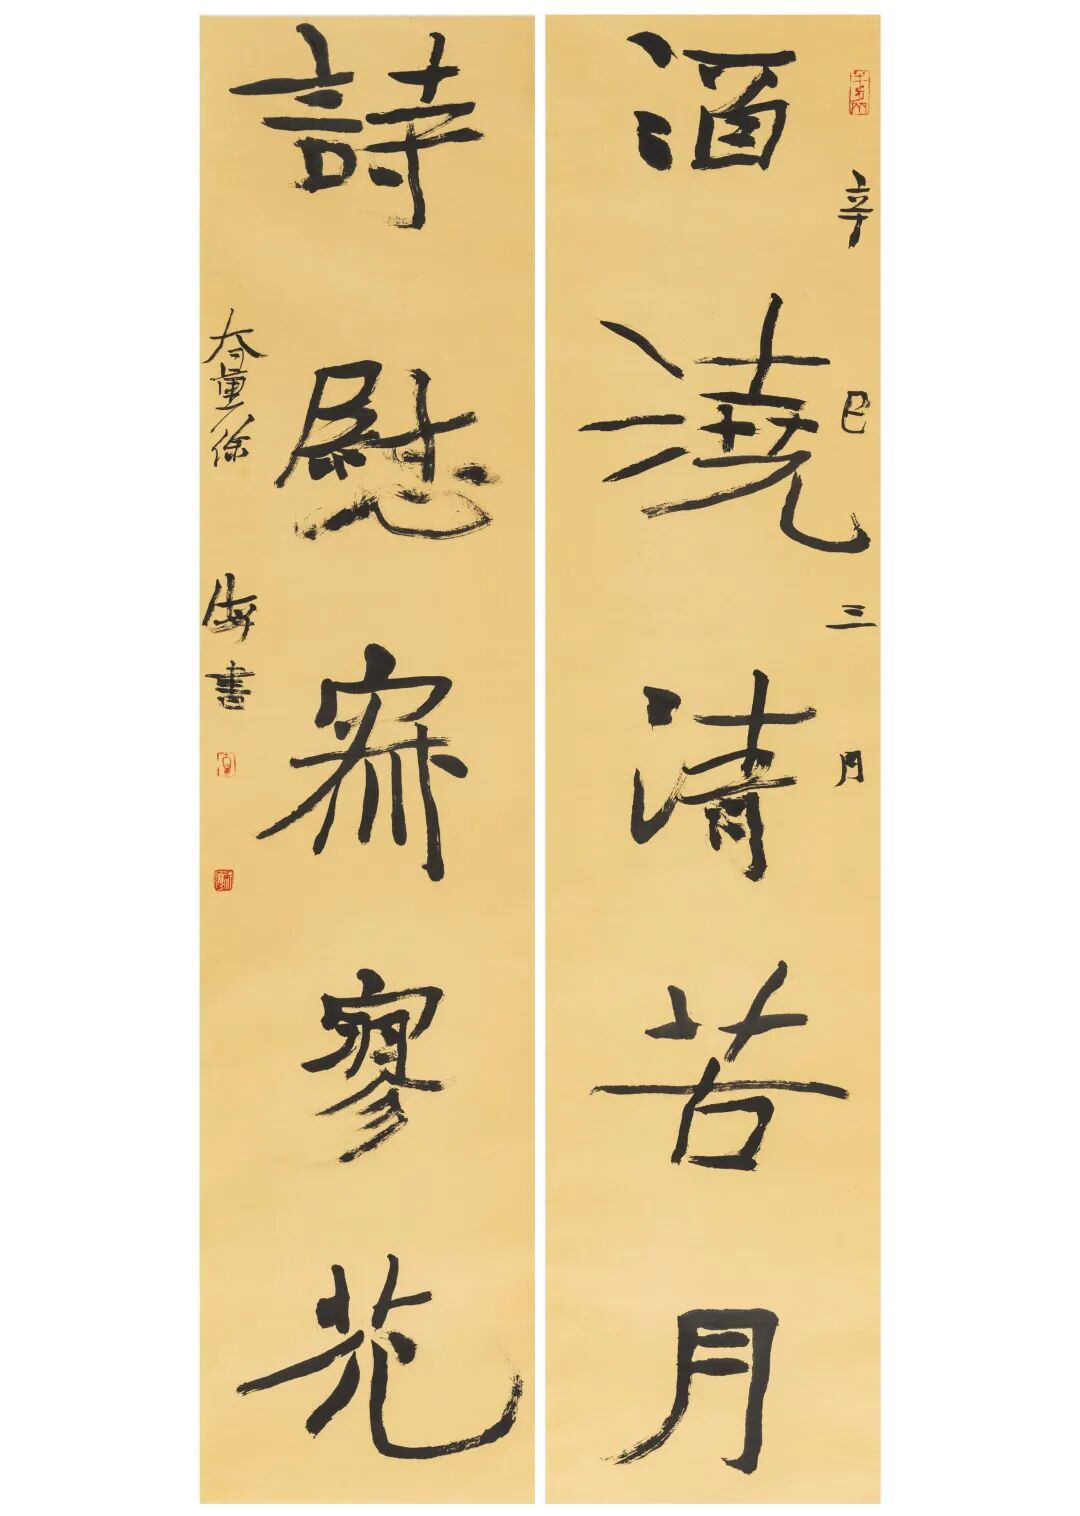 辛巳三月
酒澆清苦月
詩慰寂寥花
徐海書